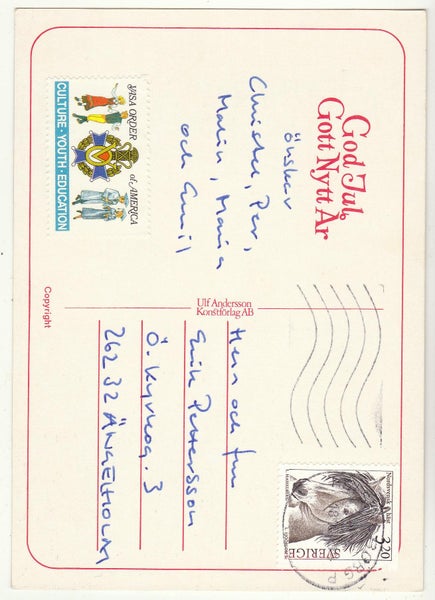 God Jul
Gott Nytt År
önskar
Christer, Per,
Malin, Maria
och Emil
VASA ORDER of AMERICA
CULTURE · YOUTH · EDUCATION
Ulf Andersson
Konstförlag AB
Copyright
Herr och fru
Erik Pettersson
Ö. Kyrkog. 3
262 32 ÄNGELHOLM
Nordsvensk häst
3.20
SVERIGE